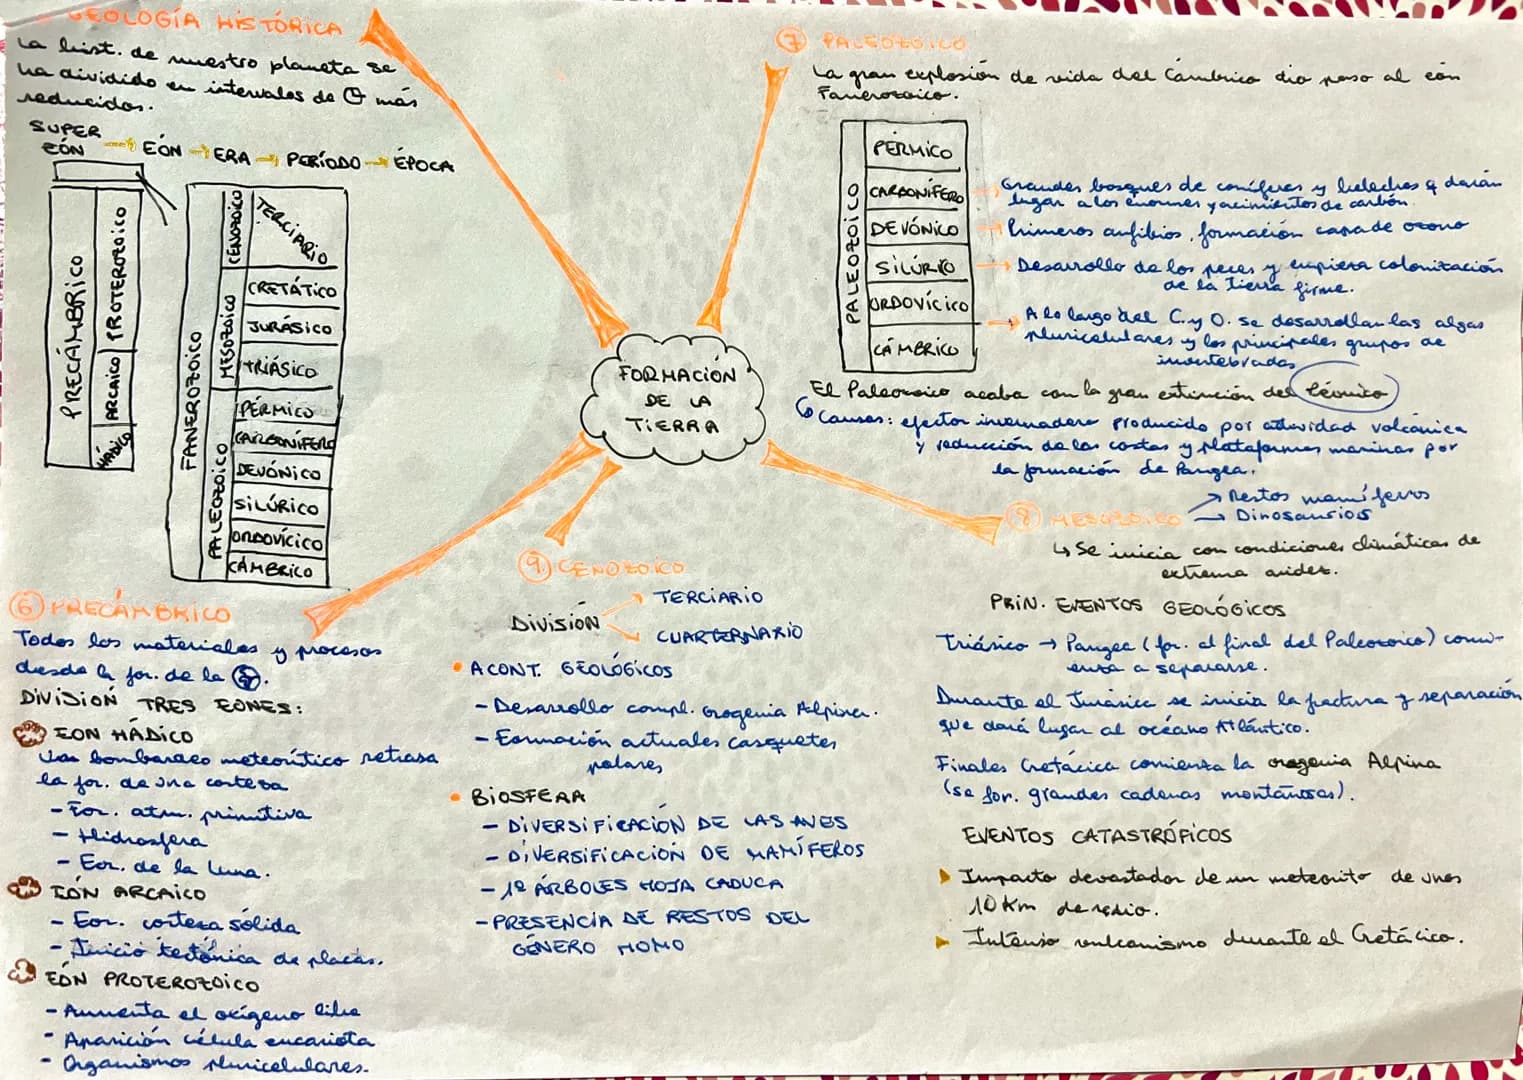 GEOLOGÍA HISTÓRICA
La hist. de nuestro planeta se
ha dividido en intervalos de más
reducidos.
SUPER
EÓN → EÓN → ERA → PERÍODO → ÉPOCA
PRECÁMBRICO
HÁDICO
ARCAICO
PROTEROZOICO
FANEROZOICO
CENOZOICO
TERCIARIO
MESOZOICO
CRETÁTICO
JURÁSICO
TRIÁSICO
PALEOZOICO
PÉRMICO
CARBONÍFERO
DEVÓNICO
SILÚRICO
ORDOVÍCICO
CÁMBRICO
FORMACIÓN
DE LA
TIERRA
⑥ PRECÁMBRICO
Todos los materiales y procesos
desde la for. de la
DIVISIÓN TRES EONES:
EON HÁDICO
bombardeo meteorítico retrasa
la for. de una corteza
- For. atm. primitiva
- Hidrosfera
- For. de la Luna.
EÓN ARCAICO
- For. corteza sólida
- Inicio tectónica de placas.
EÓN PROTEROZOICO
- Aumenta el oxígeno libre
- Aparición célula eucariota
- Organismos pluricelulares.
⑦ PALEOZOICO
La gran explosión de vida del Cámbrico dio paso al eón
Fanerozoico.
PALEOZOICO
PÉRMICO
CARBONÍFERO → Grandes bosques de coníferas y helechos q darán
lugar a los enormes yacimientos de carbón.
DEVÓNICO → Primeros anfibios, formación capa de ozono
SILÚRICO → Desarrollo de los peces y empieza colonización
de la tierra firme.
ORDOVÍCICO
CÁMBRICO
→ A lo largo del C. y O. se desarrollan las algas
pluricelulares y los principales grupos de
invertebrados
El Paleozoico acaba con la gran extinción del Pérmico
Causas: efector invernadero producido por actividad volcánica
y reducción de las costas y plataformas marinas por
la formación de Pangea.
⑧ MESOZOICO
→ Restos mamíferos
→ Dinosaurios
↳ Se inicia con condiciones climáticas de
extrema aridez.
PRIN. EVENTOS GEOLÓGICOS
Triásico → Pangea (for. al final del Paleozoico) comi-
enza a separarse.
Durante el Jurásico se inicia la fractura y separación
que dará lugar al océano Atlántico.
Finales Cretácico comienza la orogenia Alpina
(se for. grandes cadenas montañosas).
EVENTOS CATASTRÓFICOS
Impacto devastador de un meteorito de unos
10 Km de radio.
Intenso vulcanismo durante el Cretácico.
⑨ CENOZOICO
DIVISIÓN
→ TERCIARIO
→ CUARTERNARIO
• ACONT. GEOLÓGICOS
- Desarrollo compl. orogenia Alpina.
- Formación actuales casquetes
polares
• BIOSFERA
- DIVERSIFICACIÓN DE LAS AVES
- DIVERSIFICACIÓN DE MAMÍFEROS
- 1º ÁRBOLES HOJA CADUCA
- PRESENCIA DE RESTOS DEL
GÉNERO HOMO